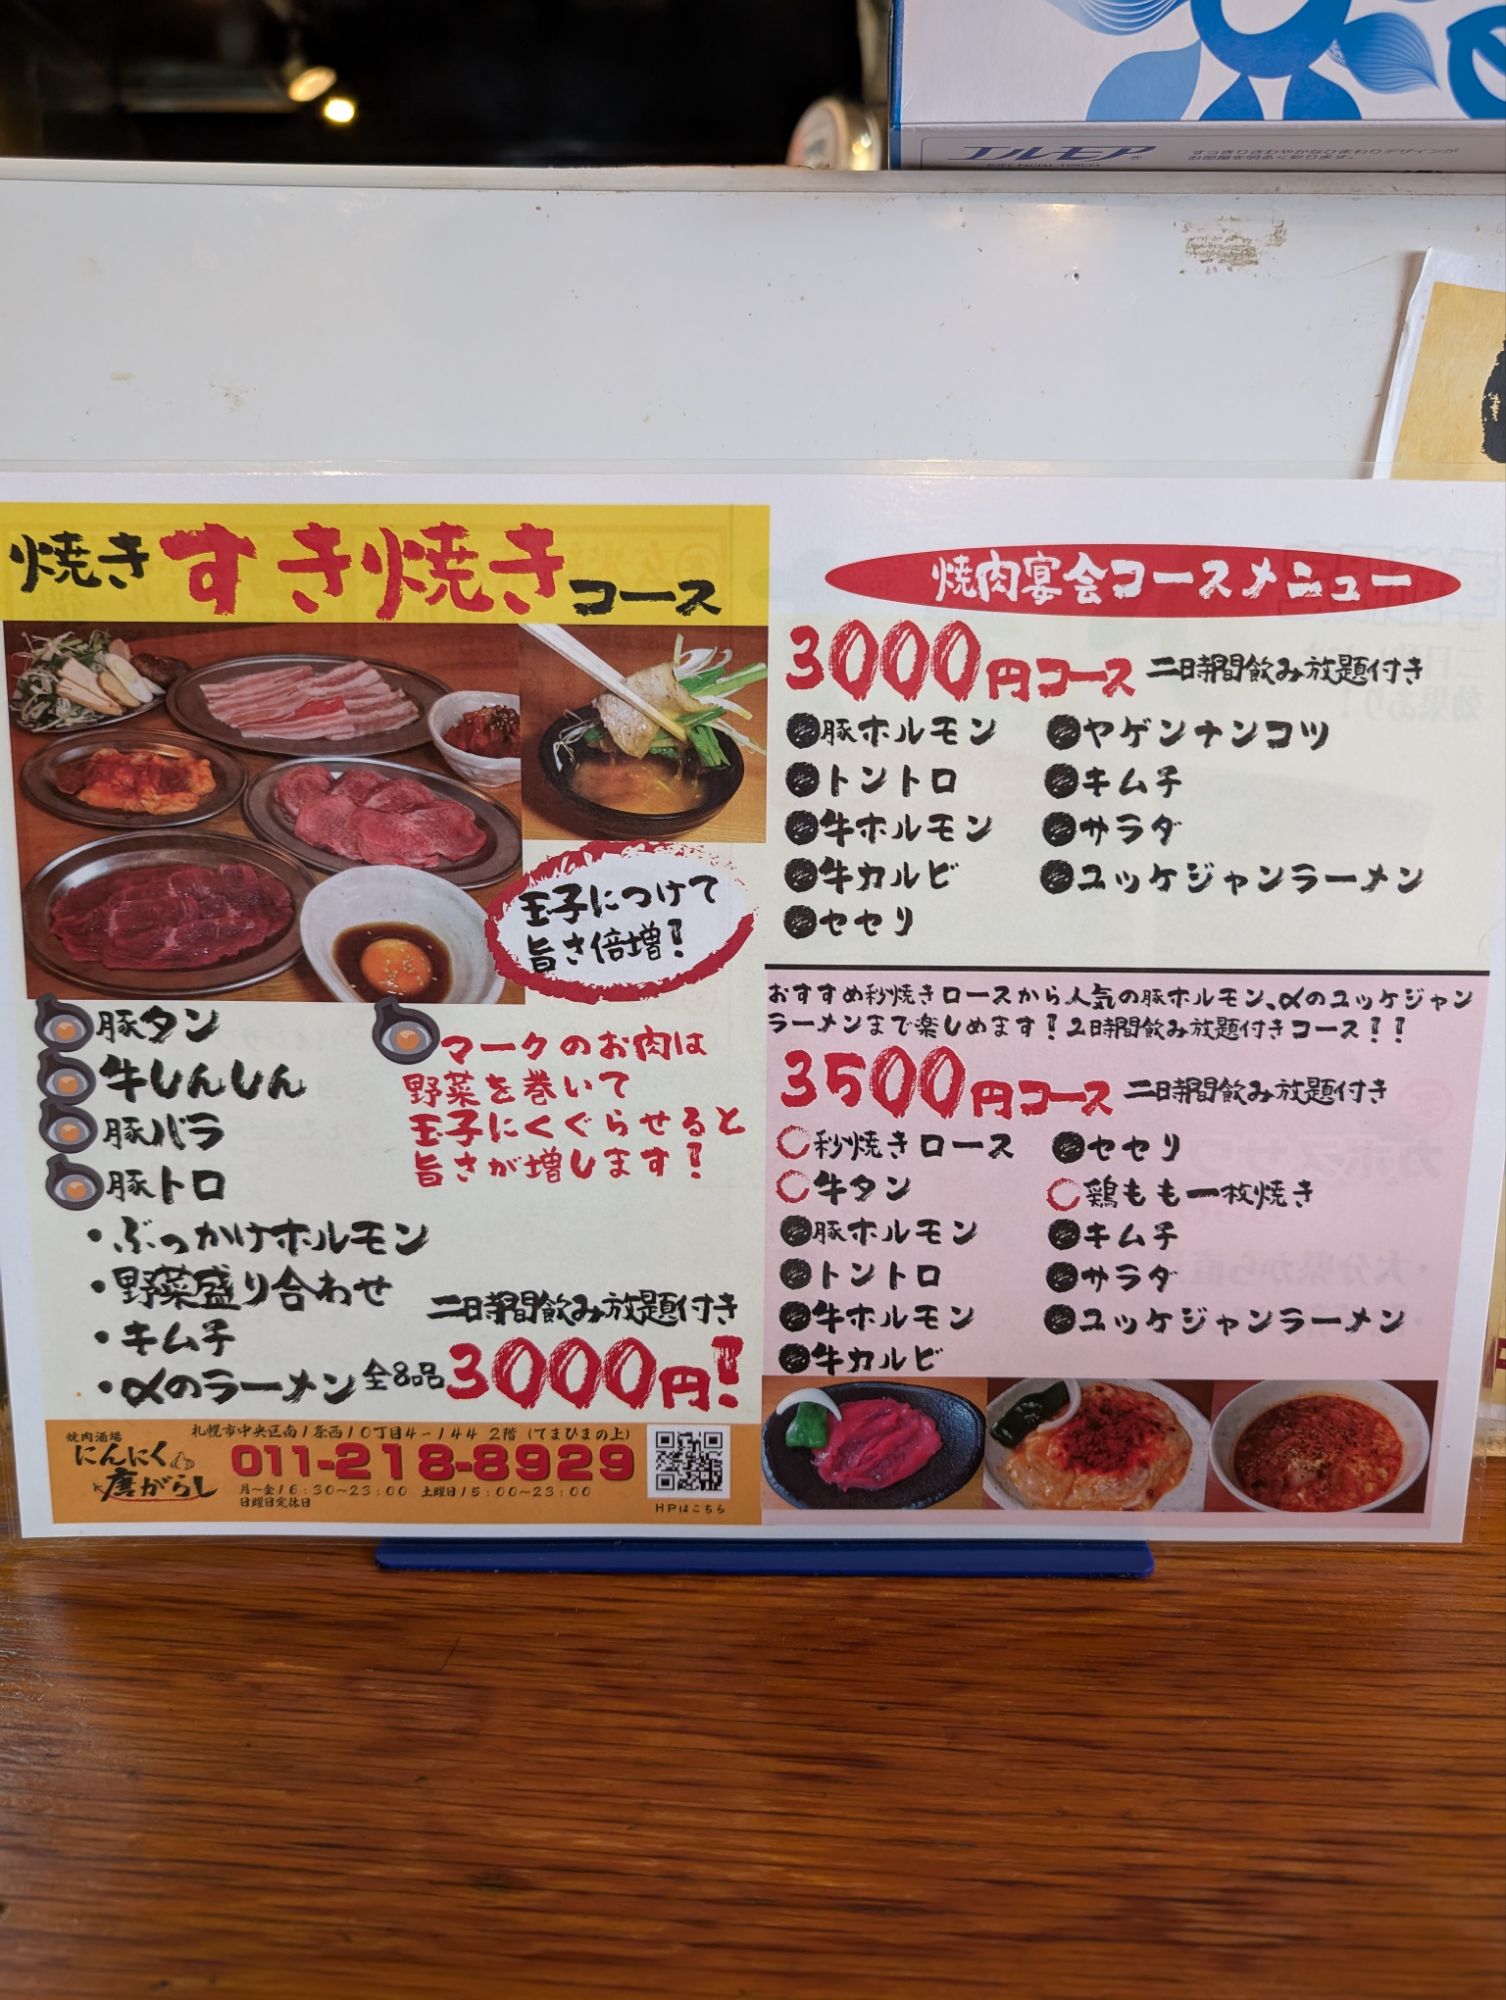 エルモア
SOFT FACIAL TISSUES
すっきりさわやかなひまわりデザインが
お部屋を明るく彩ります。
焼きすき焼きコース
玉子につけて
旨さ倍増!
豚タン
牛しんしん
豚バラ
豚トロ
・ぶっかけホルモン
・野菜盛り合わせ
・キムチ
・〆のラーメン
マークのお肉は
野菜を巻いて
玉子にくぐらせると
旨さが増します!
二日時間飲み放題付き
全8品3000円!
焼肉酒場
にんにく
唐がらし
札幌市中央区南1条西10丁目4-144 2階(てまひまの上)
011-218-8929
月~金16:30~23:00 土曜日15:00~23:00
日曜日定休日
HPはこちら
焼肉宴会コースメニュー
3000円コース 二日時間飲み放題付き
●豚ホルモン
●トントロ
●牛ホルモン
●牛カルビ
●セセリ
●ヤゲンナンコツ
●キムチ
●サラダ
●ユッケジャンラーメン
おすすめ秒焼きロースから人気の豚ホルモン、〆のユッケジャン
ラーメンまで楽しめます!2日時間飲み放題付きコース!!
3500円コース 二日時間飲み放題付き
○秒焼きロース
○牛タン
●豚ホルモン
●トントロ
●牛ホルモン
●牛カルビ
●セセリ
○鶏もも一枚焼き
●キムチ
●サラダ
●ユッケジャンラーメン